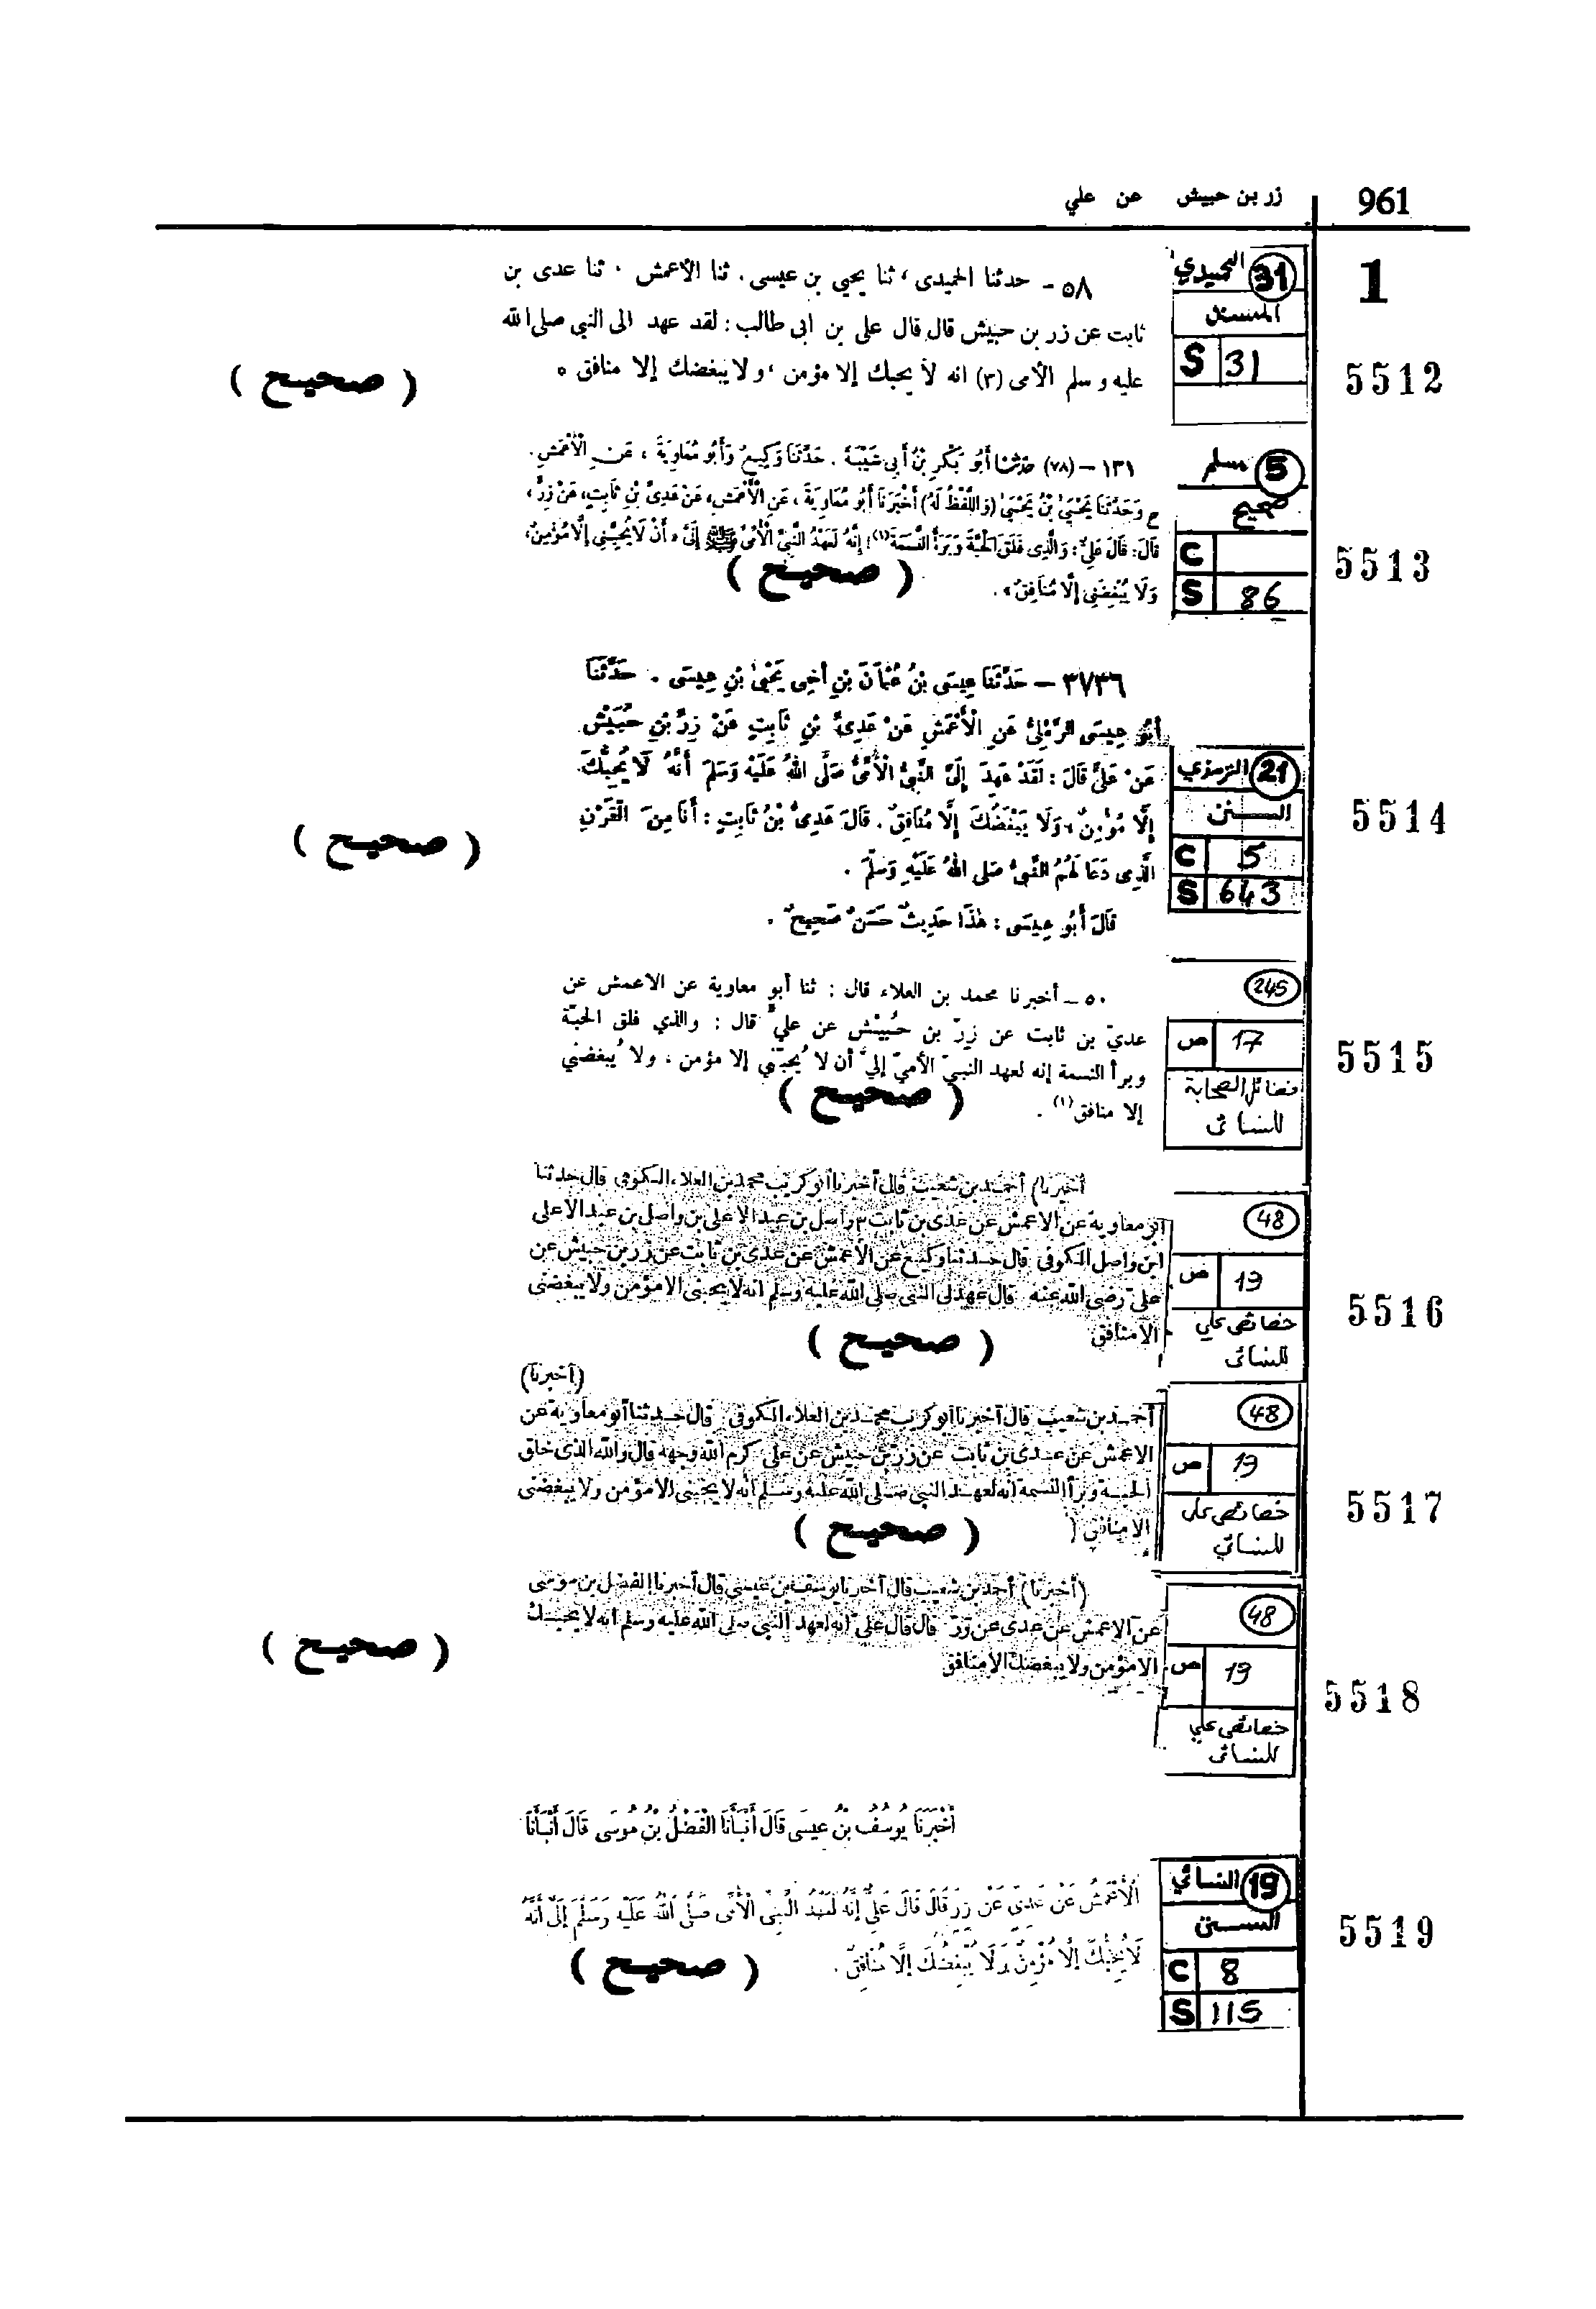 961
زر بن حبيش عن علي
1
31 الحميدي
المسند
S 31
5512
٥٨ - حدثنا الحميدى، ثنا يحيي بن عيسى. ثنا الأعمش. ثنا عدى بن
ثابت عن زر بن حبيش قال قال على بن ابى طالب: لقد عهد الى النبي صلى الله
عليه وسلم الأمى (٣) انه لا يحبك إلا مؤمن، ولا يبغضك إلا منافق ٥
( صحيح )
5 مسلم
صحيح
C
S 86
5513
١٣١ – (٧٨) حدثنا أَبُو بَكْرِ بْنُ أَبِي شَيْبَةَ. حَدَّثَنَا وَكِيعٌ وَأَبُو مُعَاوِيَةَ، عَنِ الْأَعْمَشِ.
ح وَحَدَّثَنَا يَحْيَىٰ بْنُ يَحْيَىٰ (وَاللَّفْظُ لَهُ) أَخْبَرَنَا أَبُو مُعَاوِيَةَ، عَنِ الْأَعْمَشِ، عَنْ عَدِيِّ بْنِ ثَابِتٍ، عَنْ زِرٍّ،
قَالَ: قَالَ عَلِيٌّ: وَالَّذِي فَلَقَ الْحَبَّةَ وَبَرَأَ النَّسَمَةَ(١)! إِنَّهُ لَعَهْدُ النَّبِيِّ الْأُمِّيِّ ﷺ إِلَيَّ «أَنْ لَا يُحِبَّنِي إِلَّا مُؤْمِنٌ،
وَلَا يُبْغِضَنِي إِلَّا مُنَافِقٌ».
( صحيح )
٣٧٣٦ – حَدَّثَنَا عِيسَى بْنُ عُثْمَانَ بْنِ أَخِي يَحْيَىٰ بْنِ عِيسَى. حَدَّثَنَا
أَبُو عِيسَى الرَّمْلِيُّ عَنِ الْأَعْمَشِ عَنْ عَدِيِّ بْنِ ثَابِتٍ عَنْ زِرِّ بْنِ حُبَيْشٍ
عَنْ عَلِيٍّ قَالَ: لَقَدْ عَهِدَ إِلَيَّ النَّبِيُّ الْأُمِّيُّ صَلَّى اللهُ عَلَيْهِ وَسَلَّمَ أَنَّهُ لَا يُحِبُّكَ
إِلَّا مُؤْمِنٌ، وَلَا يَبْغَضُكَ إِلَّا مُنَافِقٌ. قَالَ عَدِيُّ بْنُ ثَابِتٍ: أَنَا مِنَ الْقَرْنِ
الَّذِي دَعَا لَهُمُ النَّبِيُّ صَلَّى اللهُ عَلَيْهِ وَسَلَّمَ.
قَالَ أَبُو عِيسَى: هٰذَا حَدِيثٌ حَسَنٌ صَحِيحٌ.
( صحيح )
21 الترمذي
السنن
C 5
S 643
5514
245
ص 17
فضائل الصحابة
للنسائى
5515
٥٠ – أخبرنا محمد بن العلاء قال: ثنا أبو معاوية عن الأعمش عن
عديّ بن ثابت عن زرّ بن حُبَيْش عن عليّ قال: والذي فلق الحبّة
وبرأ النسمة إنه لعهد النبيّ الأميّ إليّ أن لا يُحبّني إلا مؤمن، ولا يُبغضني
إلا منافق(١).
( صحيح )
48
ص 19
خصائص علي
للنسائى
5516
(أخبرنا) أحمد بن شعيب قال أخبرنا أبو كريب محمد بن العلاء الكوفى قال حدثنا
ابو معاوية عن الاعمش عن عدى بن ثابت واصل بن عبد الاعلى بن واصل بن عبد الاعلى
ابن واصل الكوفى قال حدثنا وكيع عن الاعمش عن عدى بن ثابت عن زر بن حبيش عن
على رضى الله عنه قال عهد لى النبى صلى الله عليه وسلم انه لا يحبنى الا مؤمن ولا يبغضنى
الا منافق
( صحيح )
(أخبرنا)
أحمد بن شعيب قال أخبرنا أبو كريب محمد بن العلاء الكوفى قال حدثنا أبو معاوية عن
الاعمش عن عدى بن ثابت عن زر بن حبيش عن على كرم الله وجهه قال والله الذى خلق
الحبة وبرأ النسمة انه لعهد النبى صلى الله عليه وسلم أنه لا يحبنى الا مؤمن ولا يبغضنى
الا منافق
( صحيح )
48
ص 19
خصائص على
للنسائي
5517
48
ص 19
خصائص علي
للنسائى
5518
(أخبرنا) أحمد بن شعيب قال أخبرنا يوسف بن عيسى قال أخبرنا الفضل بن موسى
عن الاعمش عن عدى عن زر قال قال على انه لعهد النبى صلى الله عليه وسلم أنه لا يحبك
الا مؤمن ولا يبغضك الا منافق
( صحيح )
أَخْبَرَنَا يُوسُفُ بْنُ عِيسَى قَالَ أَنْبَأَنَا الْفَضْلُ بْنُ مُوسَى قَالَ أَنْبَأَنَا
الْأَعْمَشُ عَنْ عَدِيٍّ عَنْ زِرٍّ قَالَ قَالَ عَلِيٌّ إِنَّهُ لَعَهْدُ النَّبِيِّ الْأُمِّيِّ صَلَّى اللهُ عَلَيْهِ وَسَلَّمَ إِلَيَّ أَنَّهُ
لَا يُحِبُّكَ إِلَّا مُؤْمِنٌ وَلَا يُبْغِضُكَ إِلَّا مُنَافِقٌ.
( صحيح )
19 النسائي
السنن
C 8
S 115
5519